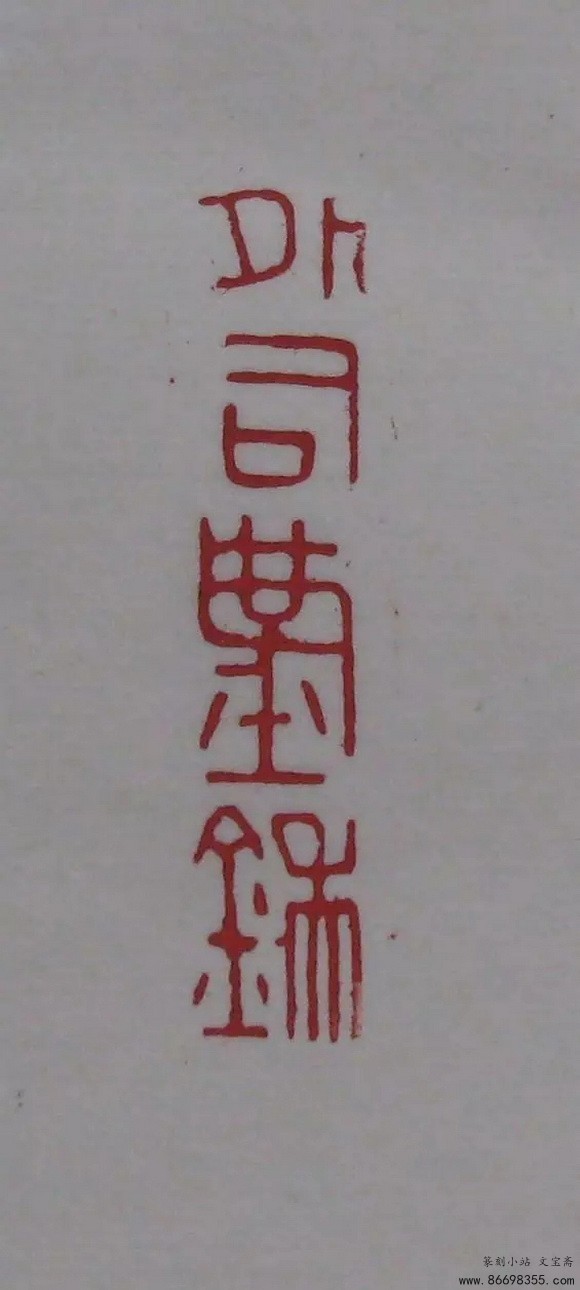 外司鍴
篆刻小站 文宝斋
www.86698355.com